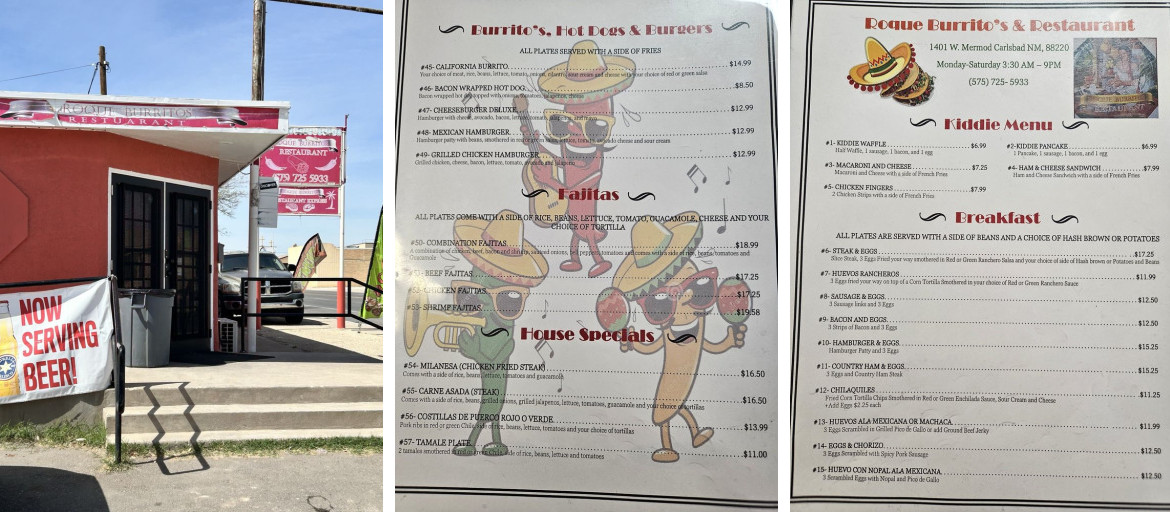 ROQUE BURRITOS
RESTUARANT
RESTAURANT
725 5933
RESTAURANT EXPRESS
NOW
SERVING
BEER!
Burrito's, Hot Dogs & Burgers
ALL PLATES SERVED WITH A SIDE OF FRIES
#45- CALIFORNIA BURRITO $14.99
Your choice of meat, rice, beans, lettuce, tomato, onions, cilantro, sour cream and cheese with your choice of red or green salsa
#46- BACON WRAPPED HOT DOG $8.50
Bacon wrapped hot dog topped with onions, tomatoes, jalapeños, cheese
#47- CHEESEBURGER DELUXE $12.99
Hamburger with cheese, avocado, bacon, lettuce, tomato,
#48- MEXICAN HAMBURGER $12.99
Hamburger patty with beans, smothered in red or green chile, lettuce, tomato, avocado cheese and sour cream
#49- GRILLED CHICKEN HAMBURGER $12.99
Grilled chicken, cheese, bacon, lettuce, tomato, avocado and jalapeno
Fajitas
ALL PLATES COME WITH A SIDE OF RICE, BEANS, LETTUCE, TOMATO, GUACAMOLE, CHEESE AND YOUR
CHOICE OF TORTILLA
#50- COMBINATION FAJITAS $18.99
A combination of chicken, beef, bacon and shrimp, sauteed onions, bell peppers, tomatoes and comes with a side of rice, beans, tomatoes and
Guacamole
#51- BEEF FAJITAS $17.25
#52- CHICKEN FAJITAS $17.25
#53- SHRIMP FAJITAS $19.58
House Specials
#54- MILANESA (CHICKEN FRIED STEAK) $16.50
Comes with a side of rice, beans, lettuce, tomatoes and guacamole
#55- CARNE ASADA (STEAK) $16.50
Comes with a side of rice, beans, grilled onions, grilled jalapenos, lettuce, tomatoes, guacamole and your choice of tortillas
#56- COSTILLAS DE PUERCO ROJO O VERDE $13.99
Pork ribs in red or green Chile, side of rice, beans, lettuce, tomatoes and your choice of tortillas
#57- TAMALE PLATE $11.00
2 tamales smothered in red or green Chile, side of rice, beans, lettuce and tomatoes
Roque Burrito's & Restaurant
1401 W. Mermod Carlsbad NM, 88220
Monday-Saturday 3:30 AM – 9PM
(575) 725- 5933
Kiddie Menu
#1- KIDDIE WAFFLE $6.99
Half Waffle, 1 sausage, 1 bacon, and 1 egg
#2-KIDDIE PANCAKE $6.99
1 Pancake, 1 sausage, 1 bacon, and 1 egg
#3- MACARONI AND CHEESE $7.25
Macaroni and Cheese with a side of French Fries
#4- HAM & CHEESE SANDWICH $7.99
Ham and Cheese Sandwich with a side of French Fries
#5- CHICKEN FINGERS $7.99
2 Chicken Strips with a side of French Fries
Breakfast
ALL PLATES ARE SERVED WITH A SIDE OF BEANS AND A CHOICE OF HASH BROWN OR POTATOES
#6- STEAK & EGGS $17.25
Slice Steak, 3 Eggs Fried your way smothered in Red or Green Ranchero Salsa and your choice of side of Hash brown or Potatoes and Beans
#7- HUEVOS RANCHEROS $11.99
3 Eggs fried your way on top of a Corn Tortilla Smothered in your choice of Red or Green Ranchero Sauce
#8- SAUSAGE & EGGS $12.50
3 Sausage links and 3 Eggs
#9- BACON AND EGGS $12.50
3 Strips of Bacon and 3 Eggs
#10- HAMBURGER & EGGS $15.25
Hamburger Patty and 3 Eggs
#11- COUNTRY HAM & EGGS $15.25
3 Eggs and Country Ham Steak
#12- CHILAQUILES $11.25
Fried Corn Tortilla Chips Smothered in Red or Green Enchilada Sauce, Sour Cream and Cheese
+Add Eggs $2.25 each
#13- HUEVOS ALA MEXICANA OR MACHACA $11.99
3 Eggs Scrambled in Grilled Pico de Gallo or add Ground Beef Jerky
#14- EGGS & CHORIZO $12.50
3 Eggs Scrambled with Spicy Pork Sausage
#15- HUEVO CON NOPAL ALA MEXICANA $12.50
3 Scrambled Eggs with Nopal and Pico de Gallo